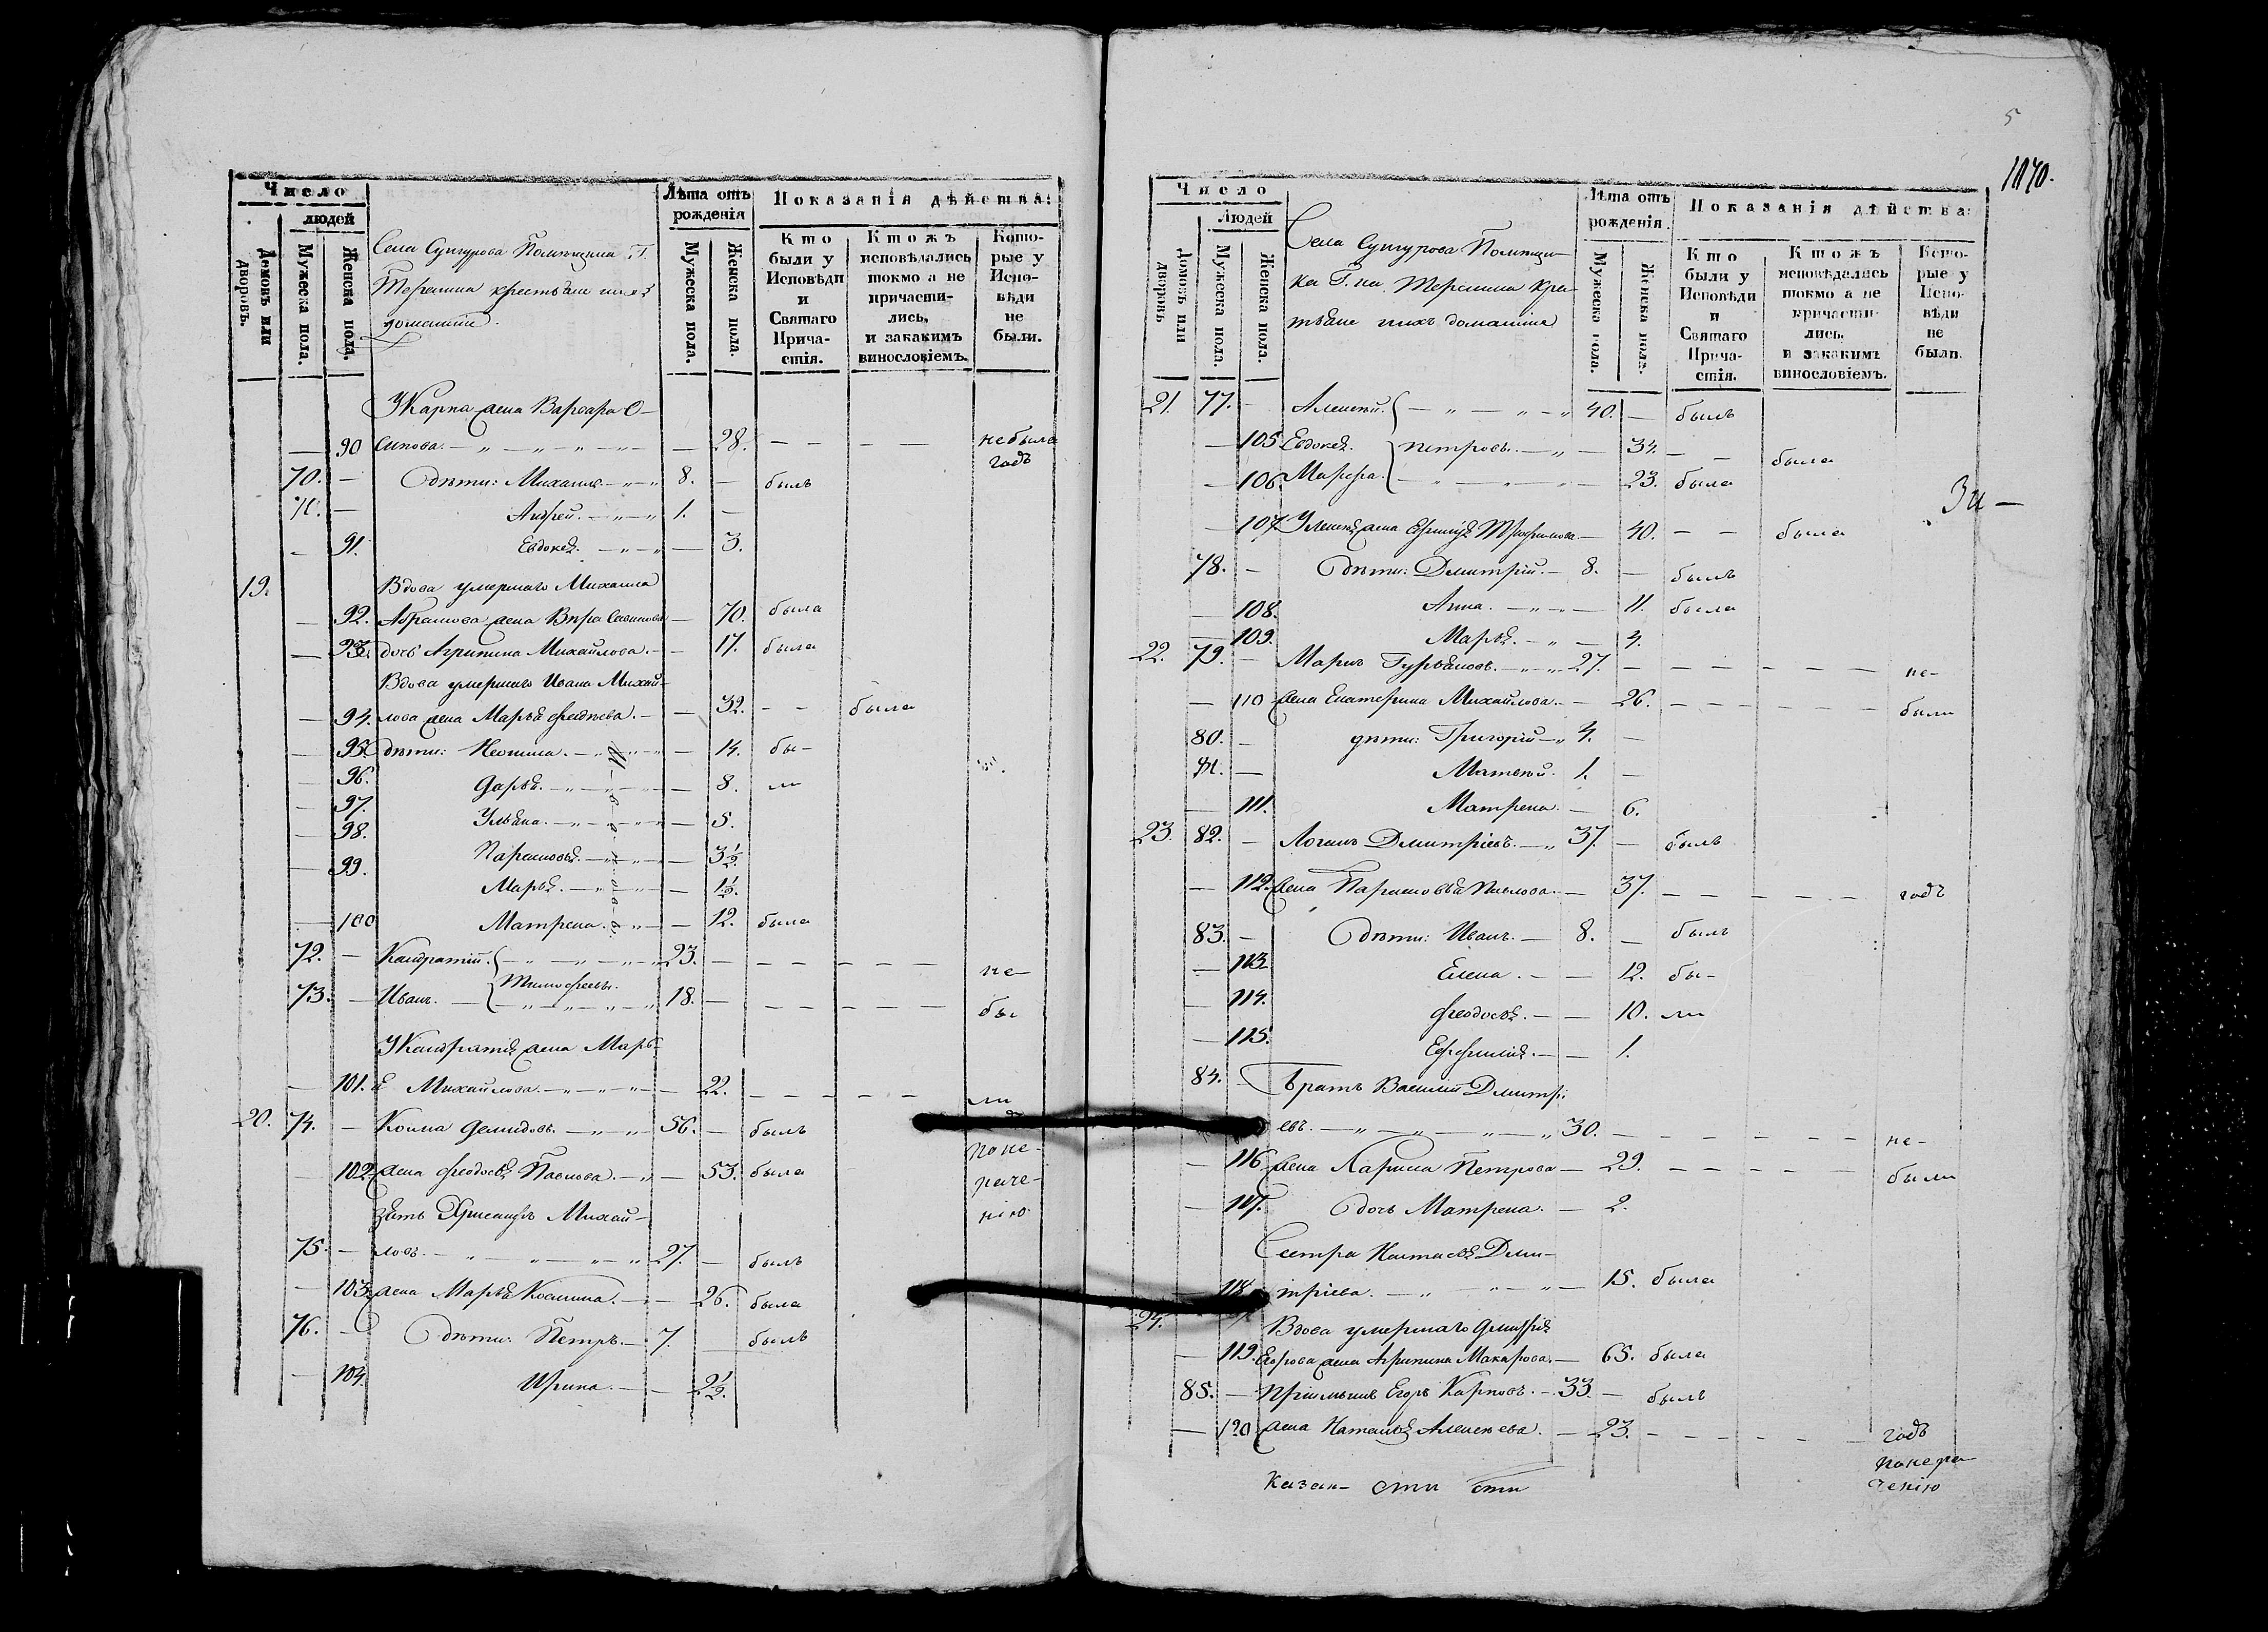 Число
людей
Домовъ или дворовъ.
Мужеска пола.
Женска пола.
Села Сунгурова Помѣщика Г.
Терехина крестьяне ихъ
домашніе.
Лѣта отъ рожденія
Мужеска пола.
Женска пола.
Показанія дѣйства:
Кто были у Исповѣди и Святаго Причастія.
Ктожъ исповѣдались токмо а не причастились, и закакимъ винословіемъ.
Которые у Исповѣди не были.
У Карпа жена Варвара О-
— 90 сипова. — 28. — — — — небыла
годъ
70. — Дѣти: Михаилъ 8. — былъ
71. — Андрей. 1. —
— 91. Евдокея. — 3.
19. Вдова умершаго Михаила
— 92. Абрамова жена Вѣра Савинова — 70. была
— 93. дочь Агрипина Михайлова. — 17. была
Вдова умершаго Ивана Михай-
— 94. лова жена Марья Фадѣева. — 32. — — была
— 95. Дѣти: Неонила. — 14. бы-
— 96. Дарья. — 8. ли
— 97. Ульяна. — 5.
— 98. Парасковья. — 3½.
— 99. Марья. — 1½.
— 100 Матрена. — 12. была
72. — Кандратій. 23. — — — — — не-
Тимофеевы.
73. — Иванъ. 18. — — — — — бы
У Кандратія жена Марь-
— 101. я Михайлова. — 22. — — — — — ли
20. 74. — Козма Демидовъ. 56. — былъ
поне-
— 102. жена Феодосья Павлова. — 53. была
раче-
зять Хрисанфъ Михай-
нію.
75. — ловъ. 27. — былъ
— 103. жена Марья Козмина. — 26. была
76. — Дѣти: Петръ. 7. былъ
— 104. Ирина. — 2½.
5
1070.
Число
Людей
Домовъ или дворовъ
Мужеска пола.
Женска пола.
Села Сунгурова Помѣщи-
ка Г.на Терехина Кре-
стьяне ихъ домашніе
Лѣта отъ рожденія.
Мужеска пола.
Женска пола.
Показанія дѣйства:
Кто были у Исповѣди и Святаго Причастія.
Ктожъ исповѣдались токмо а не причастились, и закакимъ винословіемъ.
Которые у Исповѣди не были.
21. 77. — Алексѣй. 40. — былъ
— 105 Евдокея. Петровы. — 34. — — была
— 106. Марфа. — 23. была
— 107. У Алексѣя жена Ефимія Трофимова. — 40. — — была
78. — Дѣти: Дмитрій. 8. — былъ
— 108. Анна. — 11. была
— 109. Марья. — 4.
22. 79. — Маркъ Гурьяновъ. 27. — — — — — — не-
— 110 жена Екатерина Михайлова. — 26. — — — — — — были
80. — дѣти: Григорій 4. —
81. — Матвѣй. 1. —
— 111. Матрена. — 6.
23. 82. — Логинъ Дмитріевъ. 37. — былъ
— 112. жена Парасковья Павлова. — 37. — — — — — годъ
83. — Дѣти: Иванъ. 8. — былъ
— 113. Елена. — 12. бы-
— 114. Феодосья. — 10. ли
— 115. Евфимія. — 1.
84. — Братъ Василій Дмитрі-
евъ. 30. — — — — — — не-
— 116. жена Лариса Петрова — 29. — — — — — были
— 117. Дочь Матрена. — 2.
Сестра Настасья Дми-
— 118. тріева. — 15. была
24. Вдова умершаго Дмитрія
— 119. Егорова жена Агрипина Макарова. — 65. была
85. — Пріимышъ Егоръ Карповъ. 33. — былъ
— 120 жена Наталья Алексѣева. — 23. — — — — — — годъ
понера-
ченію